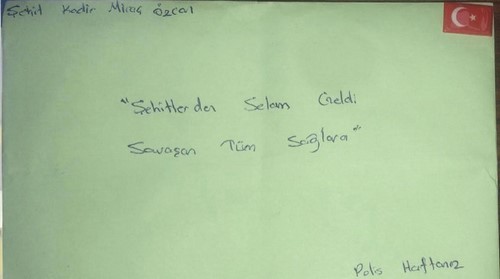 Şehit Kadir Miraç Özcal
"Şehitlerden Selam Geldi
Savaşan Tüm Sağlara"
Polis Haftanız